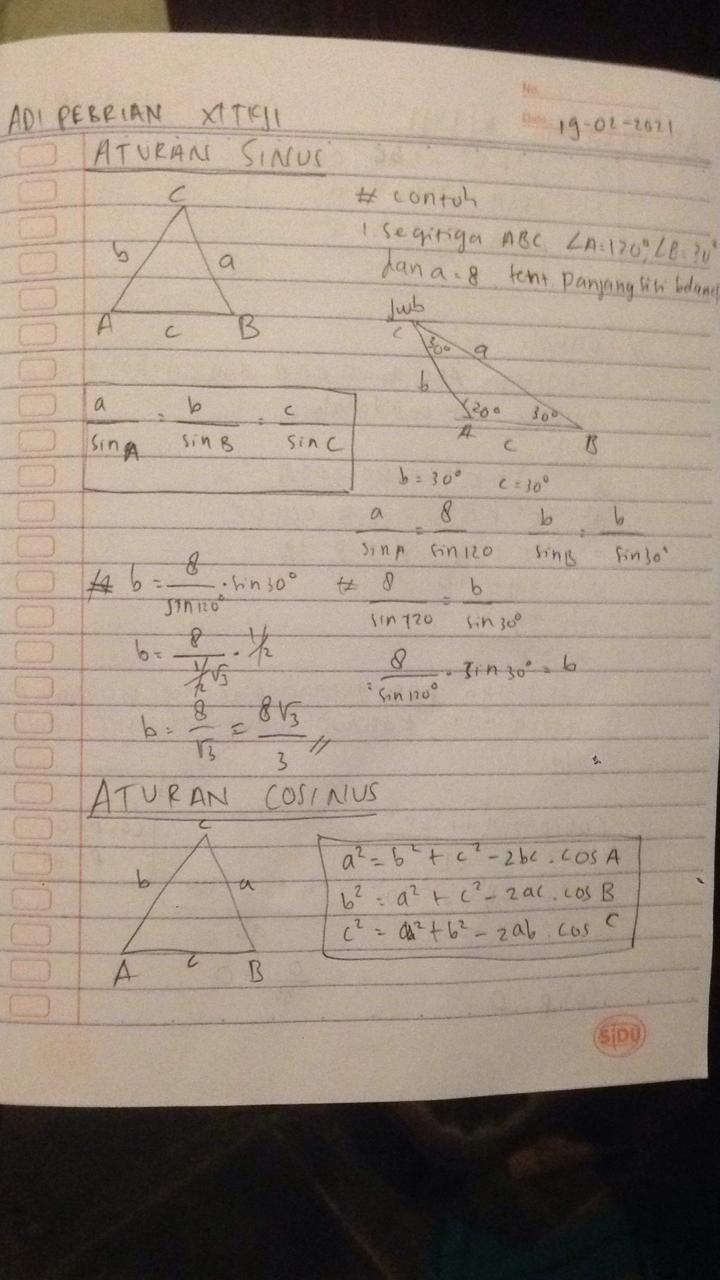 No.
Date.
ADI PEBRIAN XI TKJ1 19-02-2021
ATURAN SINUS
C
b a
A c B
a/sin A = b/sin B = c/sin C
# contoh
1. Segitiga ABC. ∠A=120°, ∠B=30°
dan a=8. tent. Panjang sisi b dan c
Jwb
C 30° a
b
120° 30°
A c B
b=30° c=30°
a/sin A = 8/sin 120 b/sin B = b/sin 30°
# 8/sin 120 = b/sin 30°
= 8/sin 120° · sin 30° = b
# b = 8/sin 120° · sin 30°
b = 8/½√3 · ½
b = 8/√3 = 8√3/3 //
ATURAN COSINUS
C
b a
A c B
a² = b² + c² - 2bc . cos A
b² = a² + c² - 2ac . cos B
c² = a² + b² - 2ab . cos C
SiDU